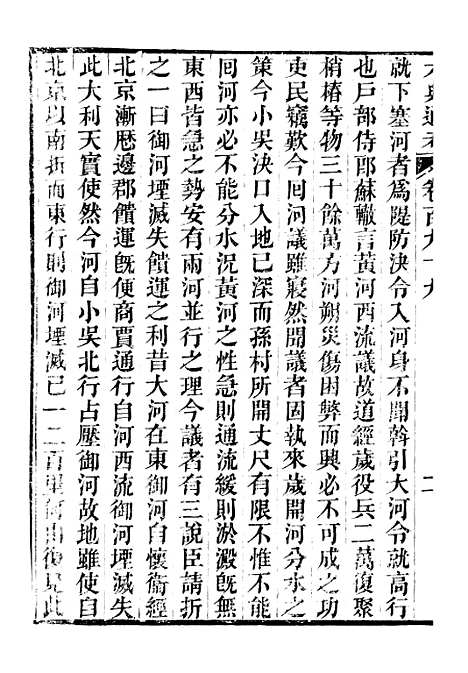 六典通考 卷百九十九 二
就下塞河者爲隄防決令入河身不聞斡引大河令就高行
也戶部侍郎蘇轍言黃河西流議故道經歲役兵二萬復聚
梢椿等物三十餘萬方河朔災傷困弊而興必不可成之功
吏民竊歎今回河議雖寢然聞議者固執來歲開河分水之
策今小吳決口入地已深而孫村所開丈尺有限不惟不能
回河亦必不能分水況黃河之性急則通流緩則淤澱旣無
東西皆急之勢安有兩河並行之理今議者有三說臣請折
之一曰御河堙滅失饋運之利昔大河在東御河自懷衞經
北京漸歷邊郡饋運旣便商賈通行自河西流御河堙滅失
此大利天實使然今河自小吳北行占壓御河故地雖使自
北京以南折而東行則御河堙滅已一二百里何由復見此